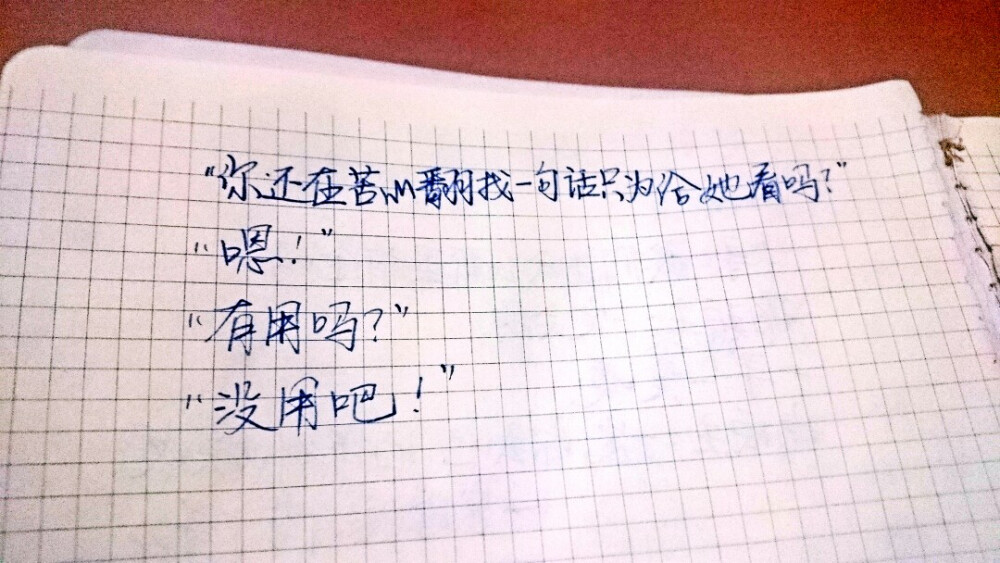 “你还在苦心翻找一句话只为给她看吗?”
“嗯!”
“有用吗?”
“没用吧!”